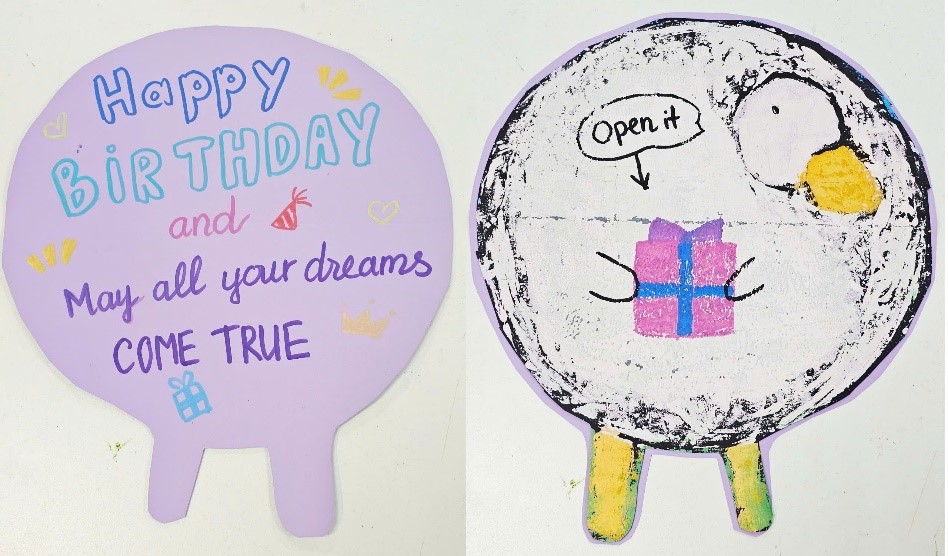 Happy
BiRTHDAY
and
May all your dreams
COME TRUE
Open it